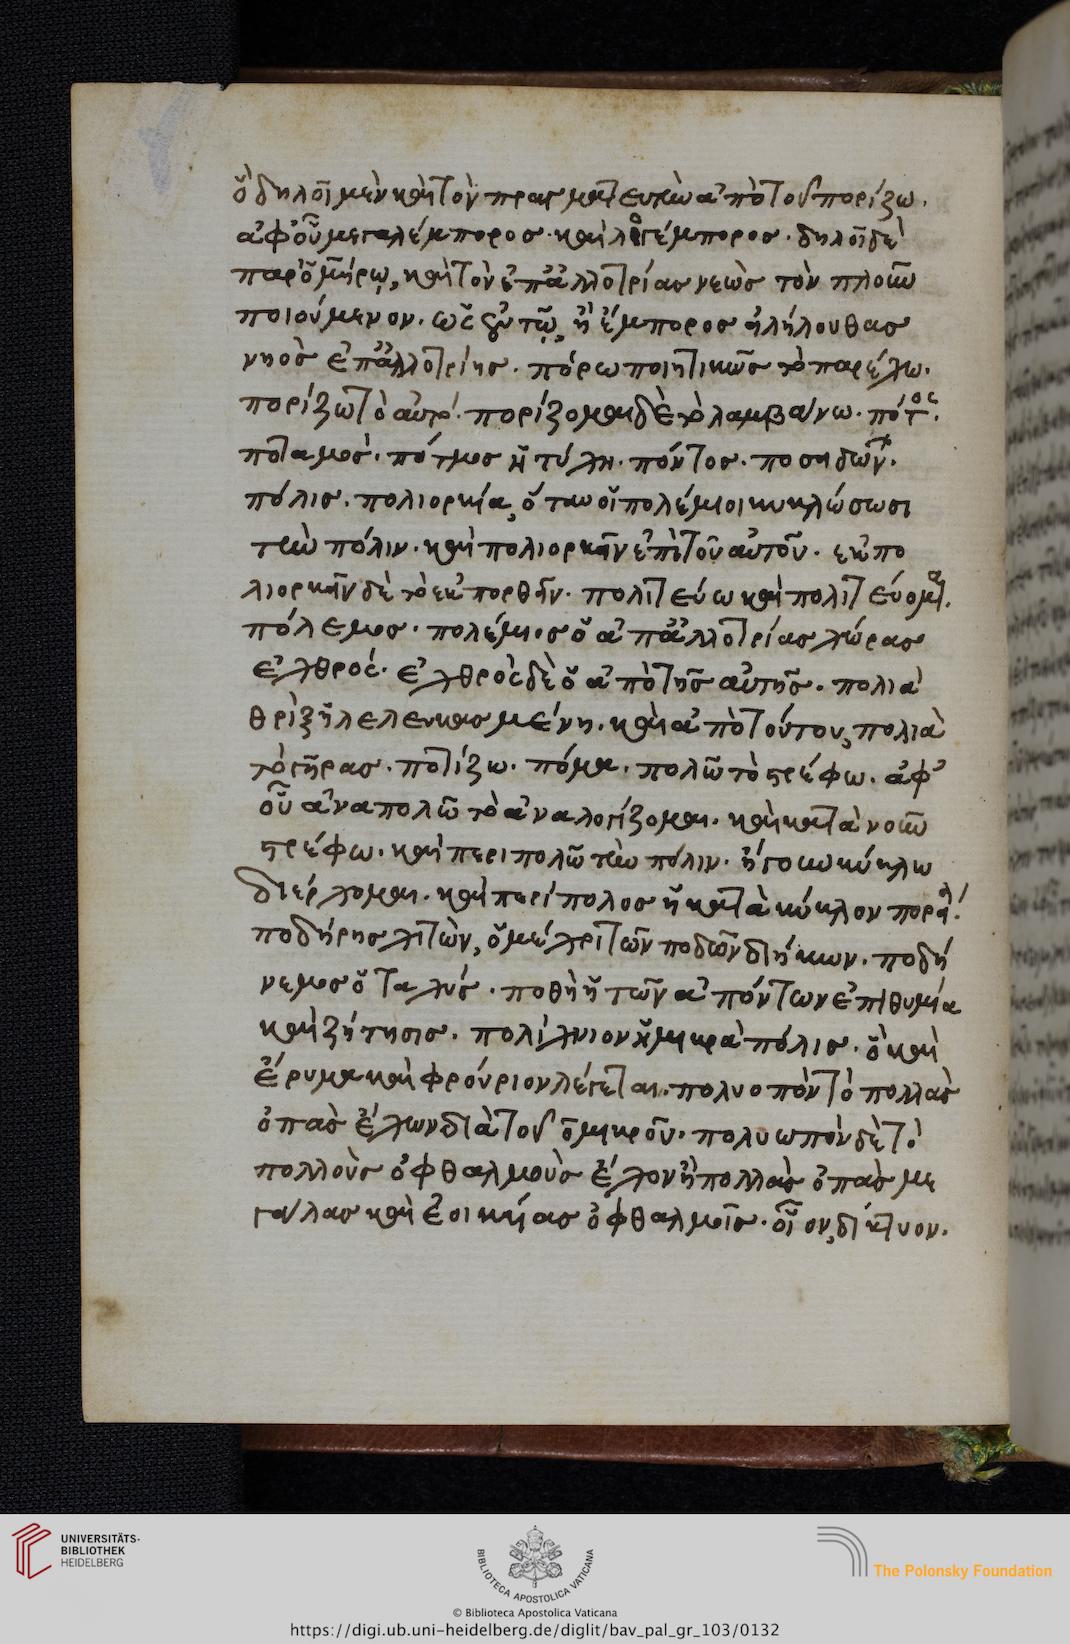 ὃ δηλοῖ μὲν καὶ τὸν πραγματευτὴν ἀπὸ τοῦ πορίζω.
ἀφ' οὗ μεγαλέμπορος. καὶ λογέμπορος. δηλοῖ δὲ
παρ' ὁμήρῳ, καὶ τὸν ἐπ' ἀλλοτρίας νεὼς τὸν πλοῦν
ποιούμενον. ὡς ἐν τῷ, ἢ ἔμπορος εἰλήλουθας
νηὸς ἐπ' ἀλλοτρίης. πόρω ποιητικῶς τὸ παρέχω.
πορίζω τὸ αὐτό. πορίζομαι δὲ τὸ λαμβάνω. πότος.
ποταμός. πότμος ἡ τύχη. πόντος. ποσειδῶν.
πόλις. πολιορκία, ὅταν οἱ πολέμιοι κυκλώσωσι
τὴν πόλιν. καὶ πολιορκεῖν ἐπὶ τοῦ αὐτοῦ. ἐκπο
λιορκεῖν δὲ τὸ ἐκπορθεῖν. πολιτεύω καὶ πολιτεύομαι.
πόλεμος. πολέμιος ὁ ἀπ' ἀλλοτρίας χώρας
ἐχθρός. ἐχθρὸς δὲ ὁ ἀπὸ τῆς αὐτῆς. πολιὰ
θρὶξ ἡ λελευκασμένη. καὶ ἀπὸ τούτου, πολιὰ
τὸ γῆρας. ποτίζω. πόμα. πολῶ τὸ στρέφω. ἀφ'
οὗ ἀναπολῶ τὸ ἀναλογίζομαι. καὶ κατὰ νοῦν
στρέφω. καὶ περιπολῶ τὴν πόλιν. ἤγουν κύκλω
διέρχομαι. καὶ περίπολος ἡ κατὰ κύκλον πορεία.
ποδήρης χιτὼν, ὁ μέχρι τῶν ποδῶν διήκων. ποδή
νεμος ὁ ταχύς. ποθὴ ἡ τῶν ἀπόντων ἐπιθυμία
καὶ ζήτησις. πολίχνιον ἡ μικρὰ πόλις. ὃ καὶ
ἔρυμα καὶ φρούριον λέγεται. πολυοπὸν τὸ πολλὰς
ὀπὰς ἔχων διὰ τοῦ ο μικροῦ. πολυωπὸν δὲ τὸ
πολλοὺς ὀφθαλμοὺς ἔχον ἢ πολλὰς ὀπὰς με
γάλας καὶ ἐοικυίας ὀφθαλμοῖς. οἷον, δίκτυον.
UNIVERSITÄTS-
BIBLIOTHEK
HEIDELBERG
BIBLIOTECA APOSTOLICA VATICANA
The Polonsky Foundation
© Biblioteca Apostolica Vaticana
https://digi.ub.uni-heidelberg.de/diglit/bav_pal_gr_103/0132